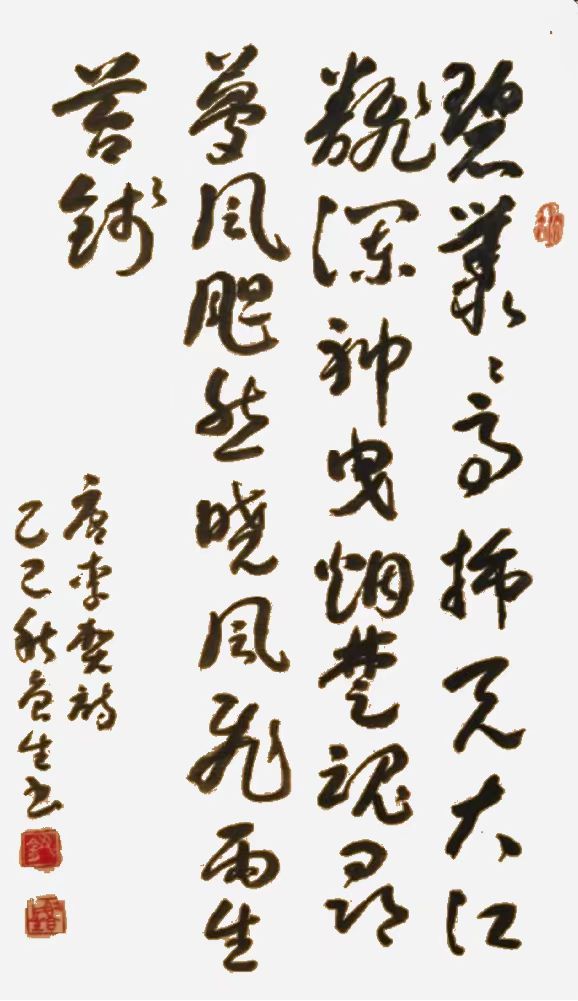 碧叢々高插天大江
飜瀾神曳烟楚魂尋
夢風颸然曉風飛雨生
苔錢
唐李賀詩
己巳秋生書